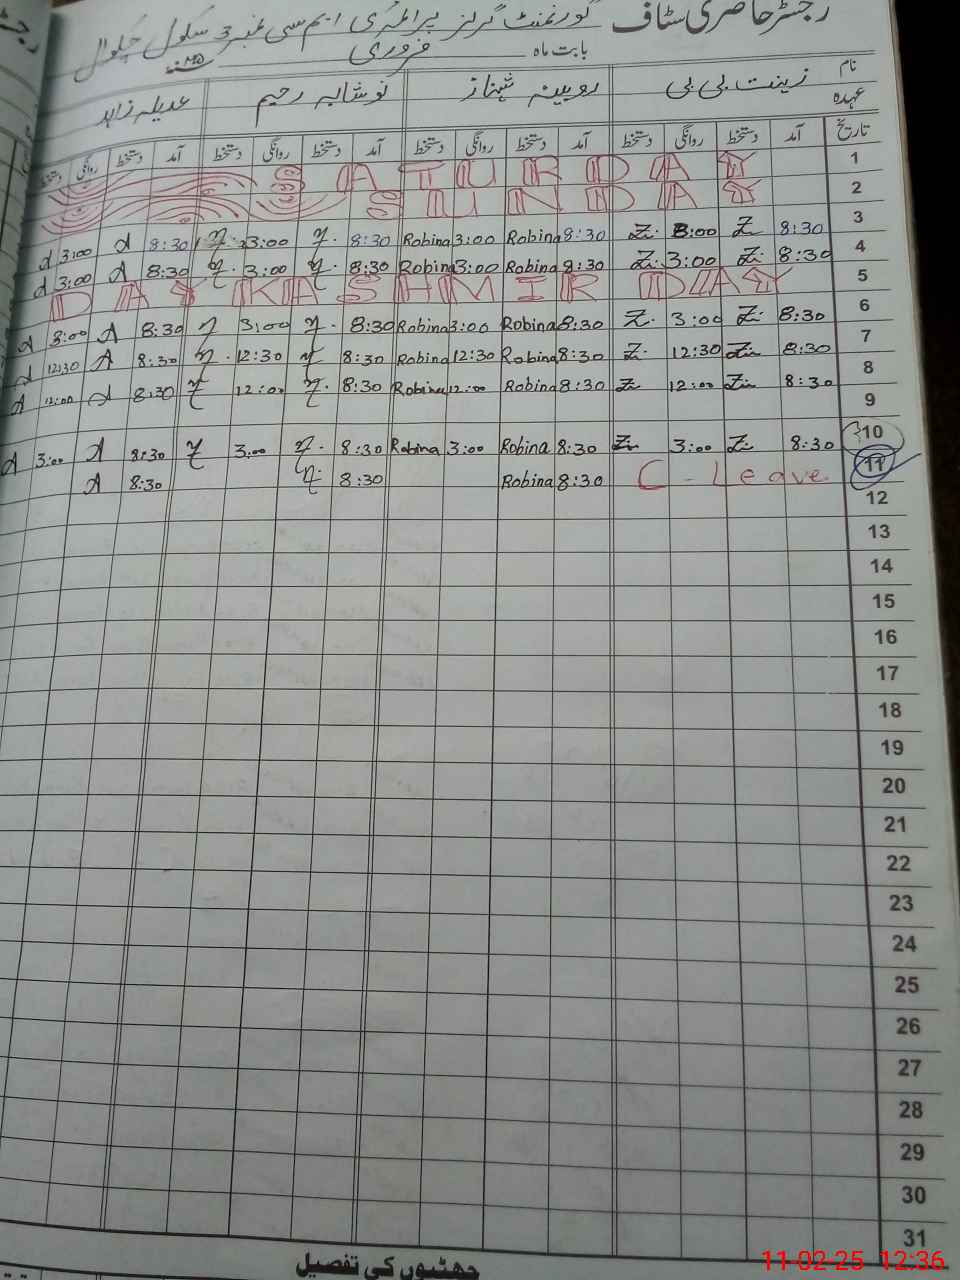 رجسٹر حاضری سٹاف گورنمنٹ گرلز پرائمری ایم سی نمبر 3 سکول چکوال
بابت ماہ فروری
نام زینت بی بی روبینہ شہناز نوشابہ رحیم عدیلہ زاہد
عہدہ
تاریخ آمد دستخط روانگی دستخط آمد دستخط روانگی دستخط آمد دستخط روانگی دستخط آمد دستخط روانگی دستخط
SATURDAY 1
SUNDAY 2
3:00 8:30 3:00 8:30 Robina 3:00 Robina 8:30 Z. 3:00 Z 8:30 3
3:00 8:30 3:00 8:30 Robina 3:00 Robina 8:30 Z. 3:00 Z. 8:30 4
DAY KASHMIR DAY 5
3:00 8:30 3:00 8:30 Robina 3:00 Robina 8:30 Z. 3:00 Z. 8:30 6
12:30 8:30 12:30 8:30 Robina 12:30 Robina 8:30 Z. 12:30 Z 8:30 7
12:00 8:30 12:00 8:30 Robina 12:00 Robina 8:30 Z 12:00 Z 8:30 8
9
3:00 8:30 3:00 8:30 Robina 3:00 Robina 8:30 Z 3:00 Z 8:30 10
8:30 8:30 Robina 8:30 C-Leave 11
12
13
14
15
16
17
18
19
20
21
22
23
24
25
26
27
28
29
30
31
چھٹیوں کی تفصیل
11-02-25 12:36